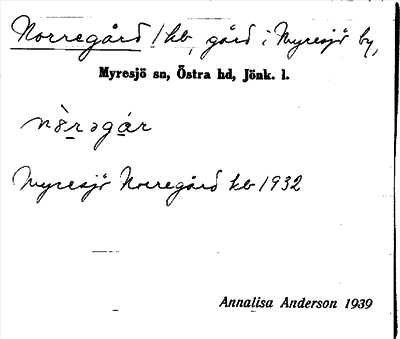 Norregård /kb, gård i Myresjö by,
Myresjö sn, Östra hd, Jönk. l.
nòrəgár
Myresjö Norregård kb 1932
Annalisa Anderson 1939